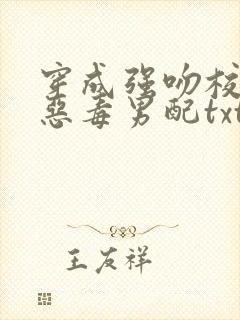 穿成强吻校
惡毒男配txt
王友祥